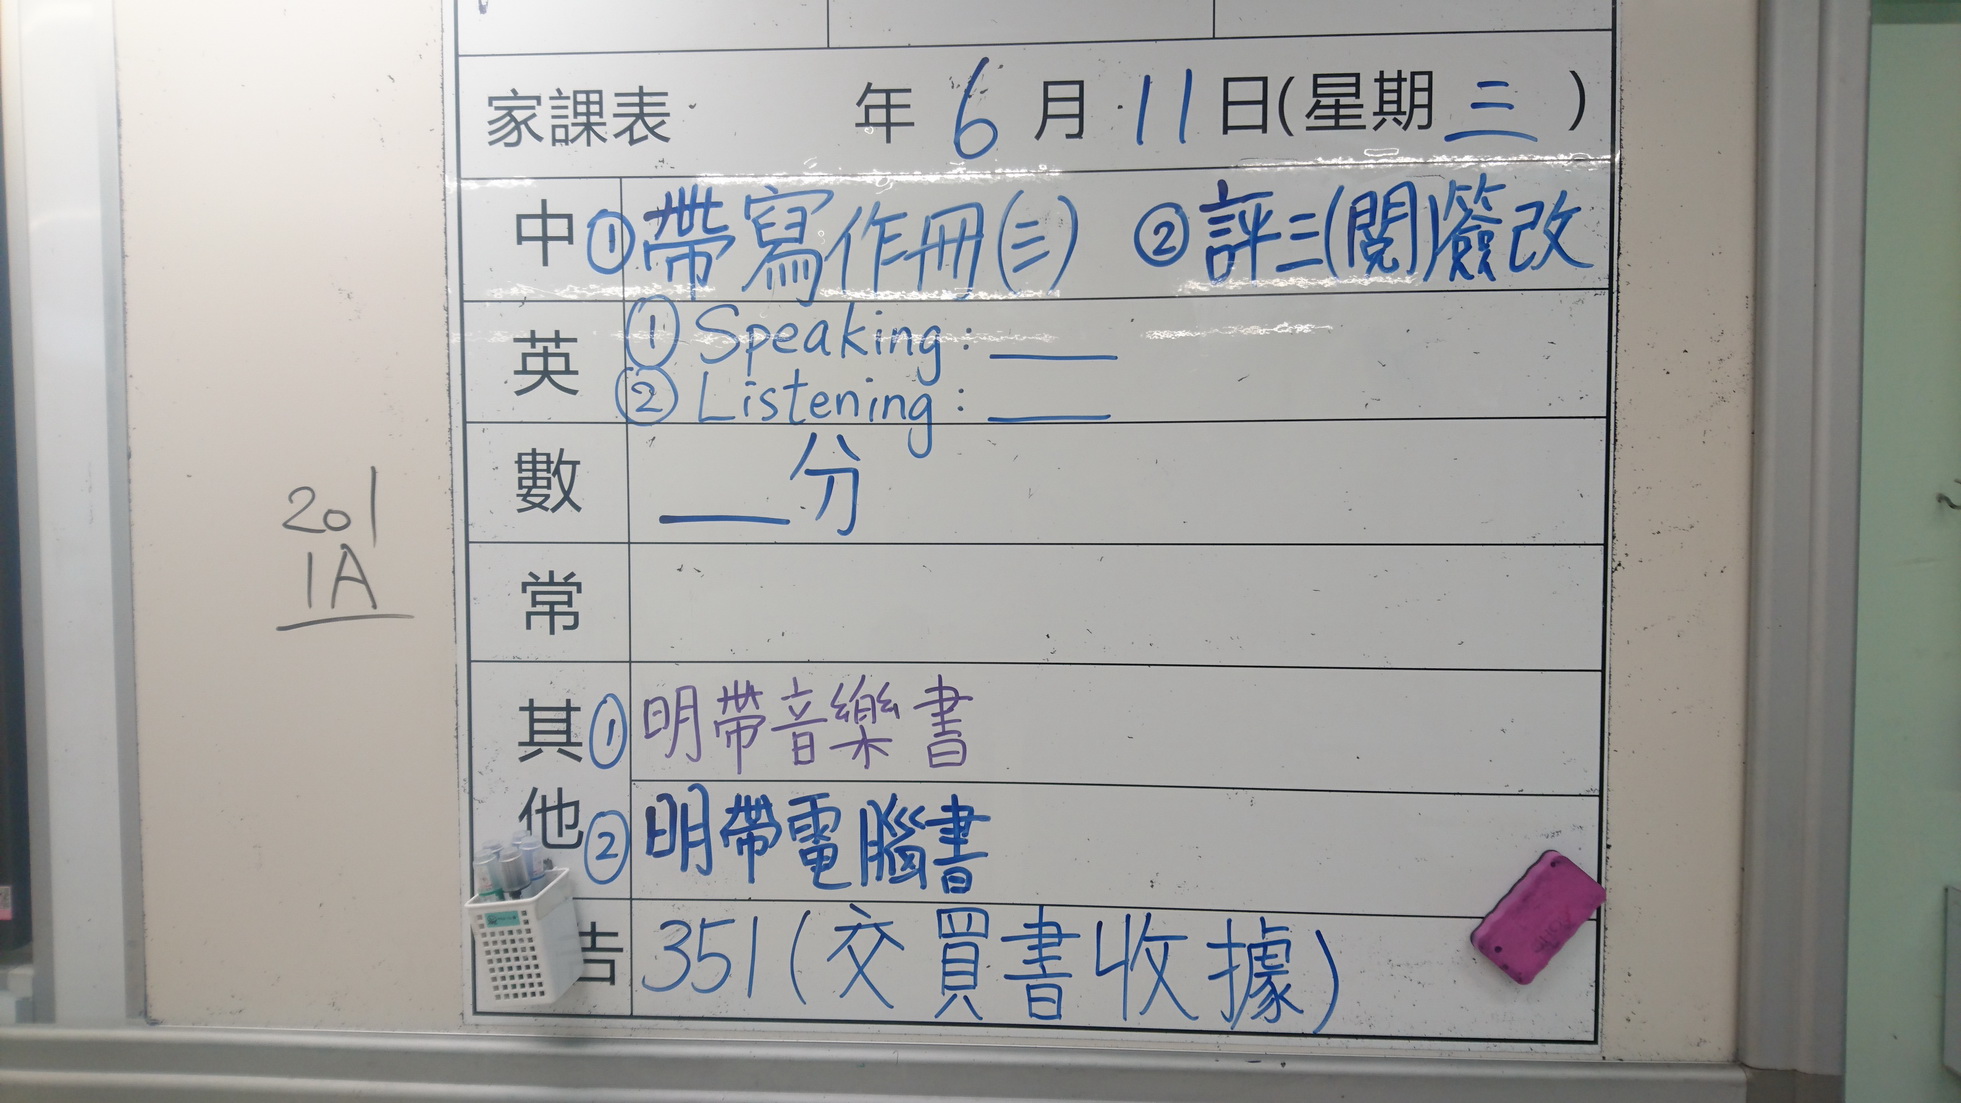 家課表 年 6 月 11 日(星期 三 )
中 ① 帶寫作冊(三) ② 評三(閱)簽改
英 ① Speaking: ____
② Listening: ____
數 ____分
201
1A
常
其他 ① 明帶音樂書
② 明帶電腦書
告 351(交買書收據)